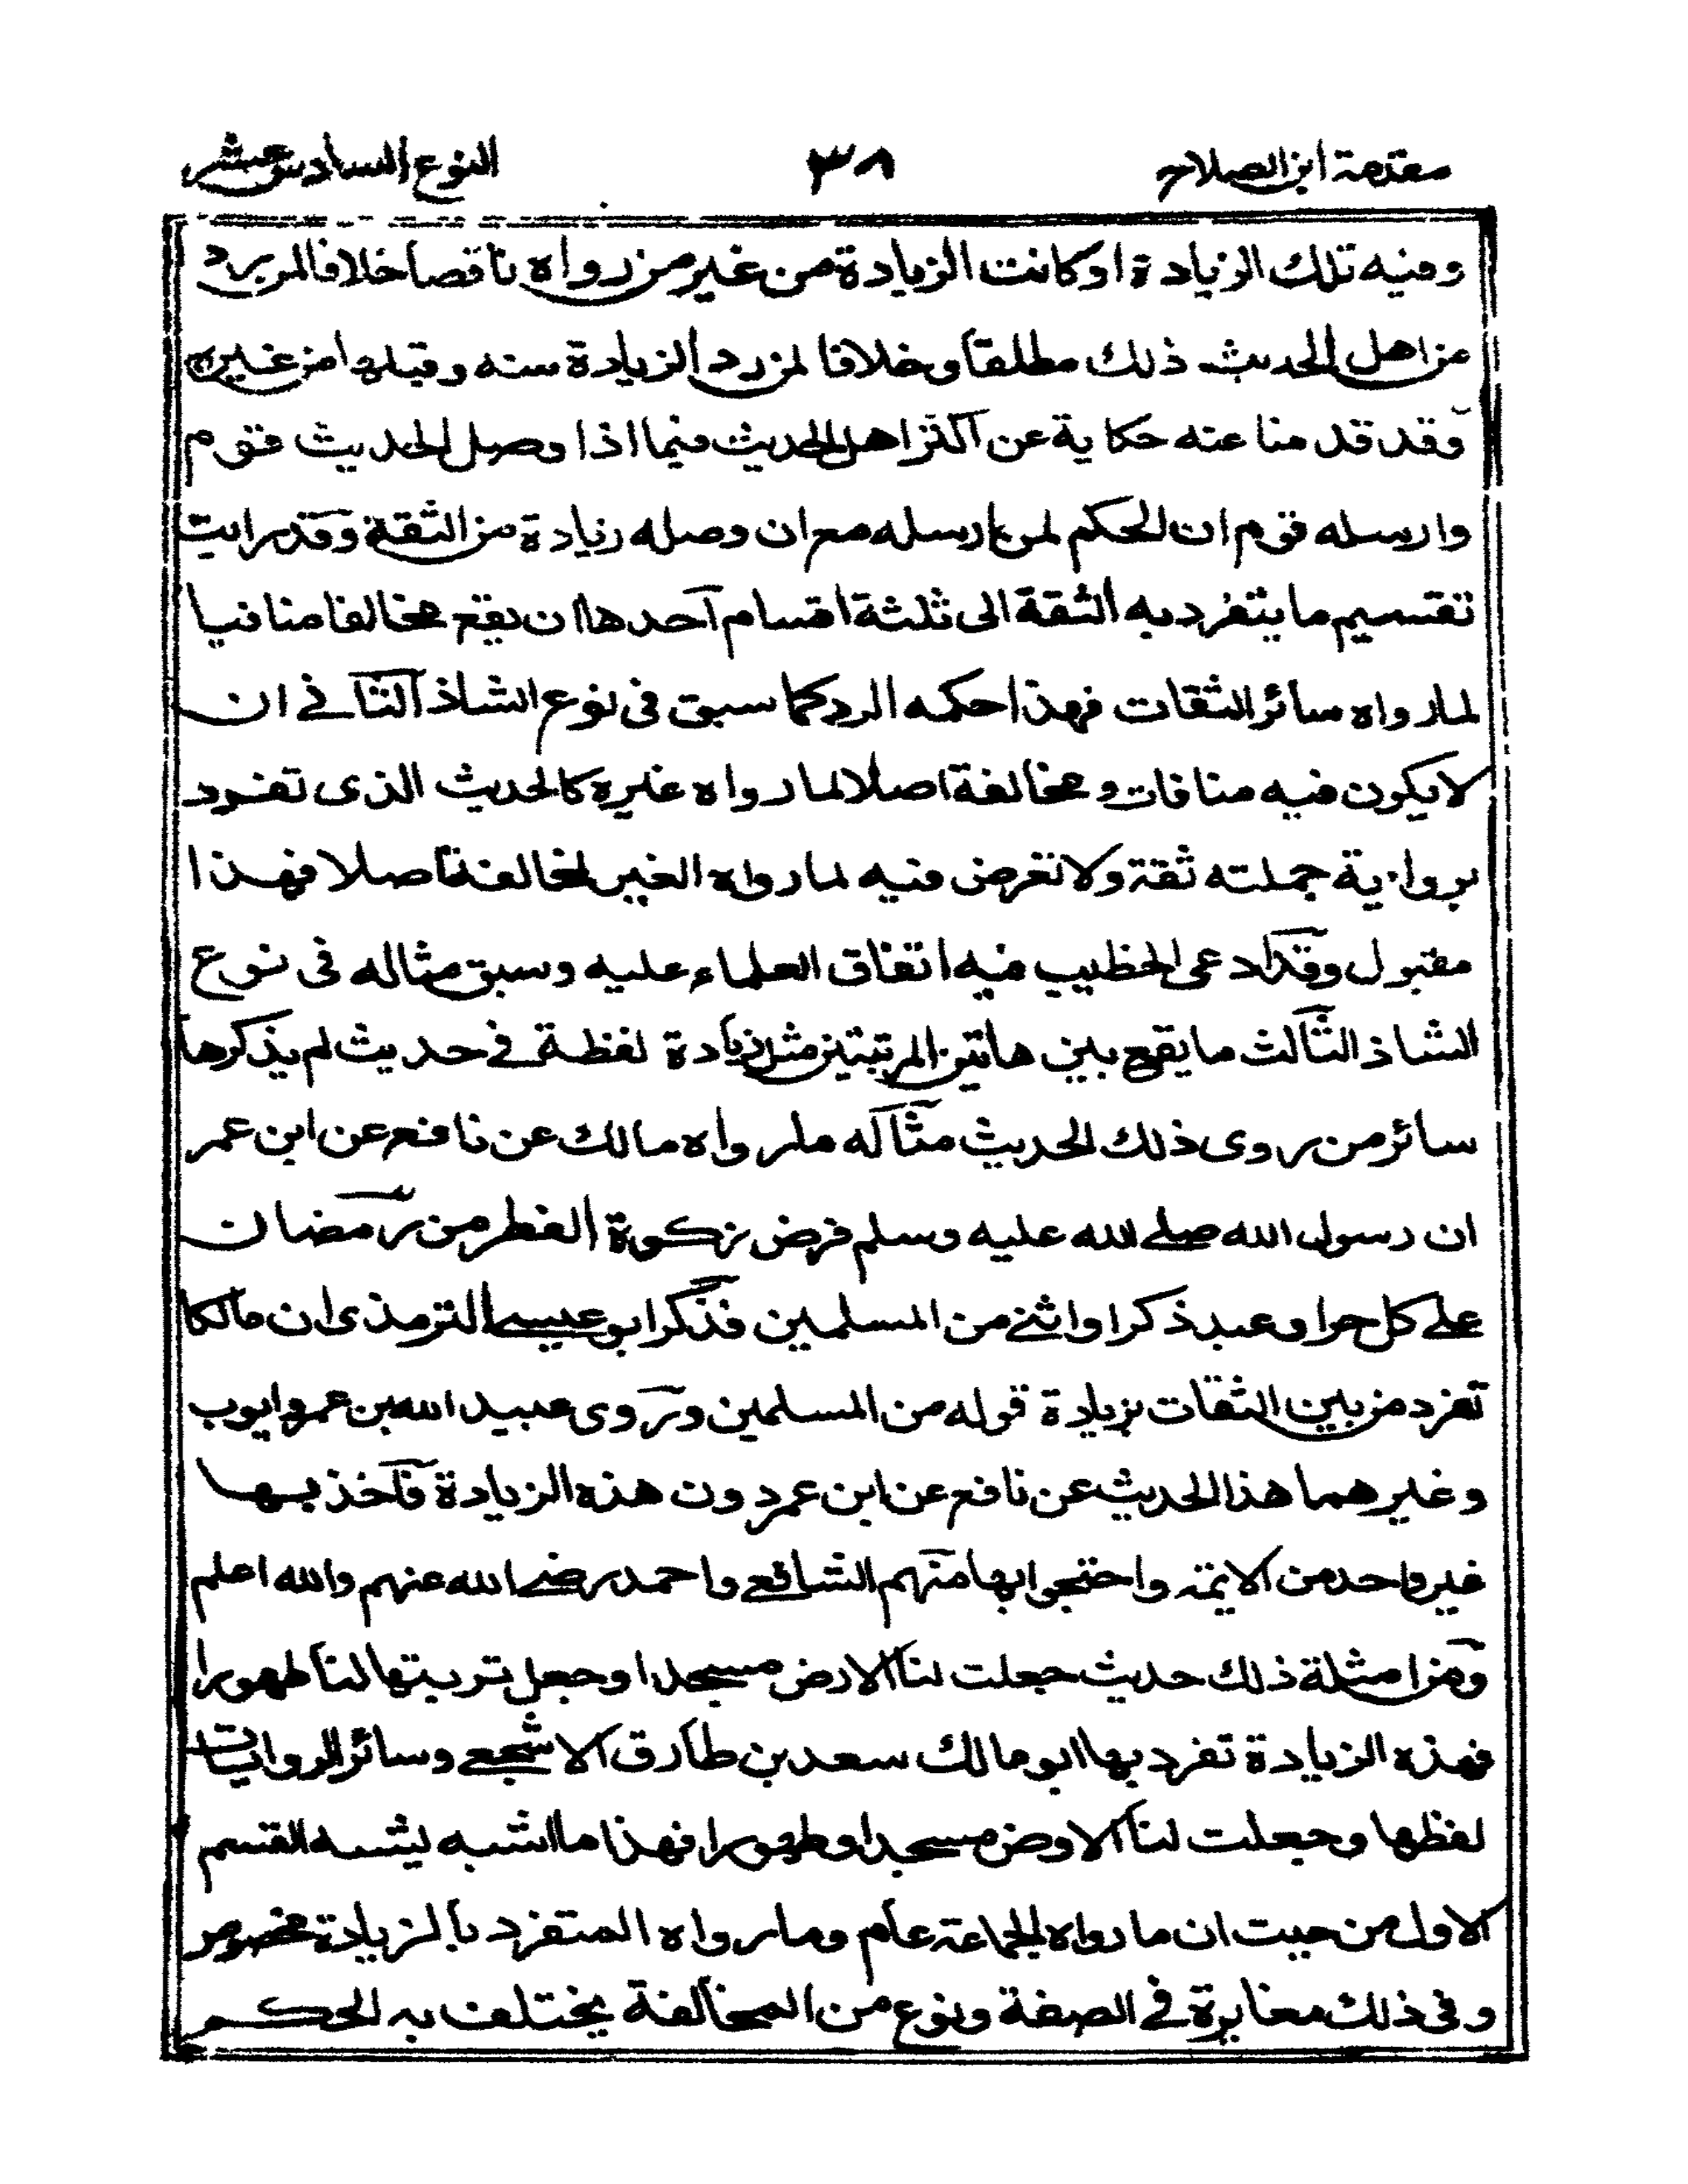 مقدمة ابن الصلاح ٣٨ النوع السادس عشر
وفيه تلك الزيادة او كانت الزيادة من غير من رواه ناقصا خلافا لمن يرد
من اهل الحديث ذلك مطلقا وخلافا لمن رد الزيادة منه وقبلها من غيره
وقد قدمنا عنه حكاية عن اكثر اهل الحديث فيما اذا وصل الحديث قوم
وارسله قوم ان الحكم لمن ارسله مع ان وصله زيادة من الثقة وقد رايت
تقسيم ما يتفرد به الثقة الى ثلثة اقسام احدها ان يقع مخالفا منافيا
لما رواه سائر الثقات فهذا حكمه الرد كما سبق فى نوع الشاذ الثانے ان
لا يكون فيه منافات و مخالفة اصلا لما رواه غيره كالحديث الذى تفرد
برواية جملته ثقة ولا تعرض فيه لما رواه الغير لمخالفة اصلا فهذا
مقبول وقد ادعى الخطيب فيه اتفاق العلماء عليه وسبق مثاله فى نوع
الشاذ الثالث ما يقع بين هاتين المرتبتين مثل زيادة لفظة فے حديث لم يذكرها
سائر من روى ذلك الحديث مثاله ما رواه مالك عن نافع عن ابن عمر
ان رسول الله صلے الله عليه وسلم فرض زكوة الفطر من رمضان
علے كل حر او عبد ذكر او انثے من المسلمين فذكر ابو عيسے الترمذى ان مالكا
تفرد من بين الثقات بزيادة قوله من المسلمين وروى عبيد الله بن عمر وايوب
وغيرهما هذا الحديث عن نافع عن ابن عمر دون هذه الزيادة فاخذ بها
غير واحد من الائمة واحتجوا بها منهم الشافعے واحمد رضے الله عنهم والله اعلم
ومن امثلة ذلك حديث جعلت لنا الارض مسجدا وجعل تربتها لنا طهورا
فهذه الزيادة تفرد بها ابو مالك سعد بن طارق الاشجعے وسائر الروايات
لفظها وجعلت لنا الارض مسجدا وطهورا فهذا ما اشبه يشبه القسم
الاول من حيث ان ما رواه الجماعة عام وما رواه المتفرد بالزيادة مخصوص
وفى ذلك مغايرة فے الصفة ونوع من المخالفة يختلف به الحكم